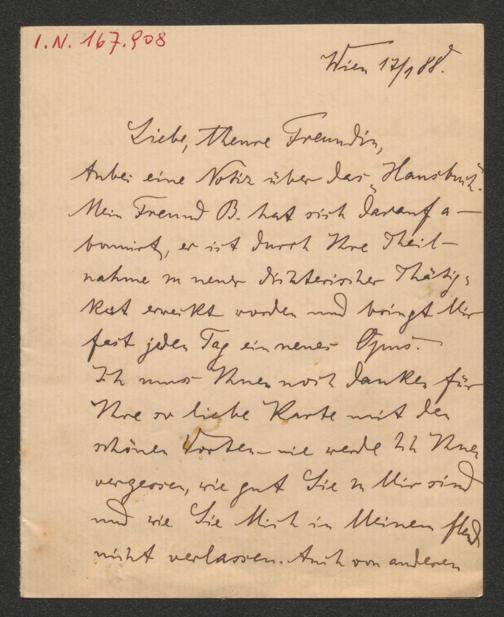 I.N. 167.908
Wien 17/1 88.
Liebe, theure Freundin,
Anbei eine Notiz über das „Hausbuch“.
Mein Freund B. hat sich darauf a-
bonnirt, er ist durch Ihre Theil-
nahme zu neuer dichterischer Thätig-
keit erweckt worden und bringt Mir
fast jeden Tag ein neues Opus.
Ich muss Ihnen noch danken für
Ihre so liebe Karte mit den
schönen Worten - nie werde Ich Ihnen
vergessen, wie gut Sie zu Mir sind
und wie Sie Mich in Meinem
nicht verlassen. Auch von anderen